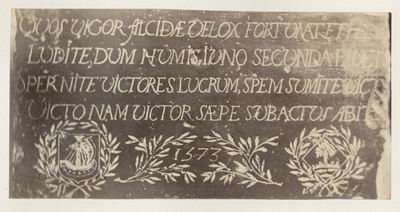 QVOS VIGOR ALCIDÆ VELOX FORTVNAT ET
LVDITE, DVM NVMIS, IVNO SECVNDA FAVET
SPERNITE VICTORES LVCRVM, SPEM SVMITE VICTI
VICTO NAM VICTOR SÆPE SVBACTVS ABIT
1573